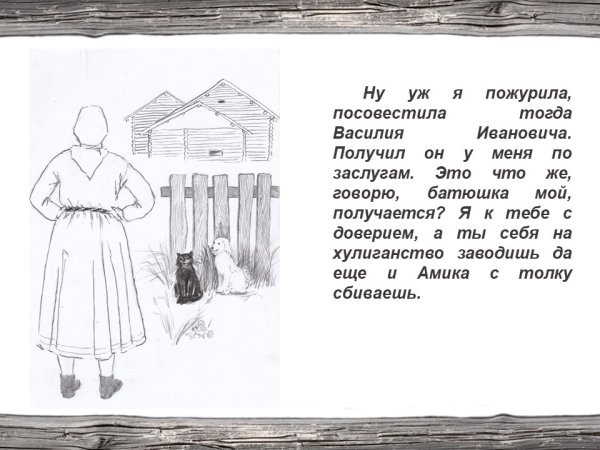 Ну уж я пожурила,
посовестила тогда
Василия Ивановича.
Получил он у меня по
заслугам. Это что же,
говорю, батюшка мой,
получается? Я к тебе с
доверием, а ты себя на
хулиганство заводишь да
еще и Амика с толку
сбиваешь.